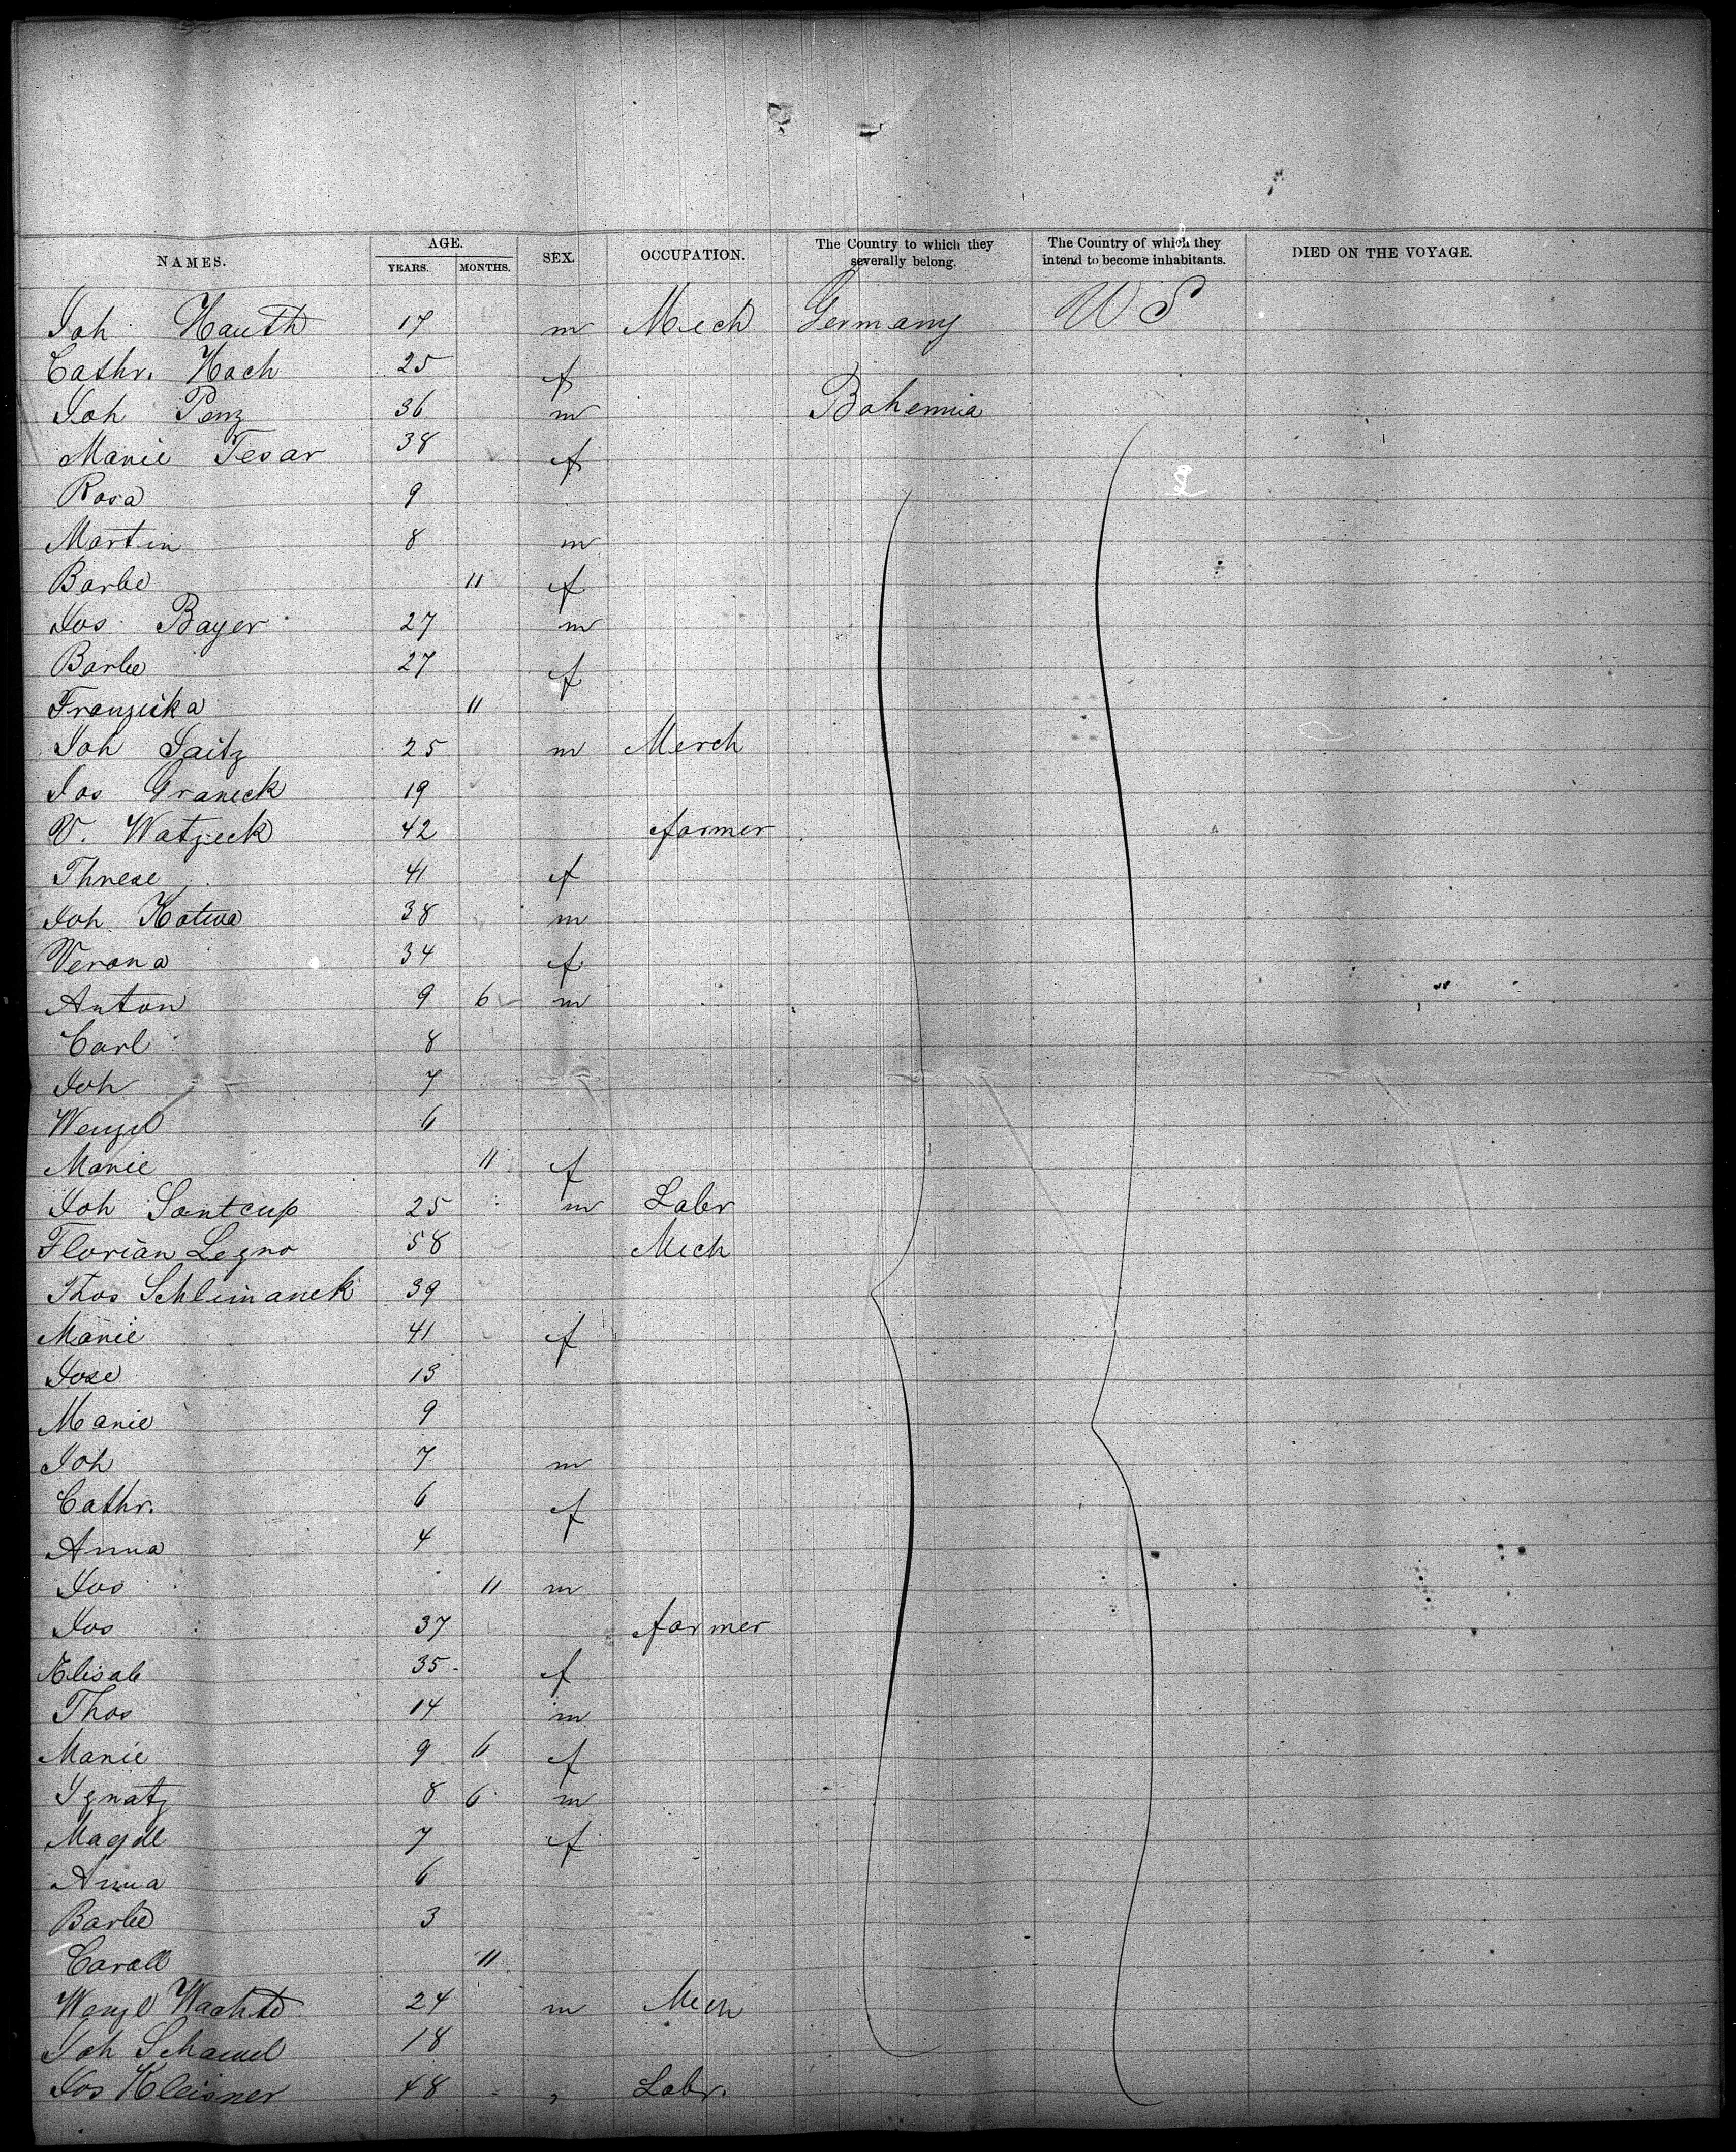 NAMES. AGE. YEARS. MONTHS. SEX. OCCUPATION. The Country to which they severally belong. The Country of which they intend to become inhabitants. DIED ON THE VOYAGE.
Joh Hauth 17 m Mech Germany U S
Cathr. Hach 25 f
Joh Penz 36 m Bohemia
Marie Tesar 38 f
Rosa 9
Martin 8 m
Barbe 11 f
Jos Bayer 27 m
Barbe 27 f
Franziska 11
Joh Saitz 25 m Merch
Jos Graneck 19
V. Watzeck 42 farmer
Threse 41 f
Joh Kotwa 38 m
Verona 34 f
Anton 9 6 m
Carl 8
Joh 7
Wenzel 6
Marie 11 f
Joh Santcup 25 m Labr
Florian Legno 58 Mech
Thos Schlimanek 39
Marie 41 f
Jose 13
Marie 9
Joh 7 m
Cathr. 6 f
Anna 4
Jos 11 m
Jos 37 farmer
Elisab 35 f
Thos 14 m
Marie 9 6 f
Ignatz 8 6 m
Magdl 7 f
Anna 6
Barbe 3
Caroll 11
Wenzl Wachtl 24 m Mech
Joh Schamel 18
Jos Kleisner 48 " Labr.